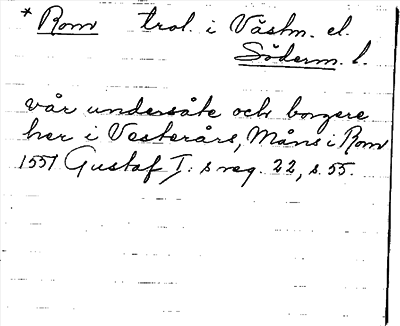 * Rom trol. i Västm. el.
Söderm. l.
vår undersåte och borgere
her i Vesterårs, Måns i Rom
1551 Gustaf I: s reg. 22, s. 55.